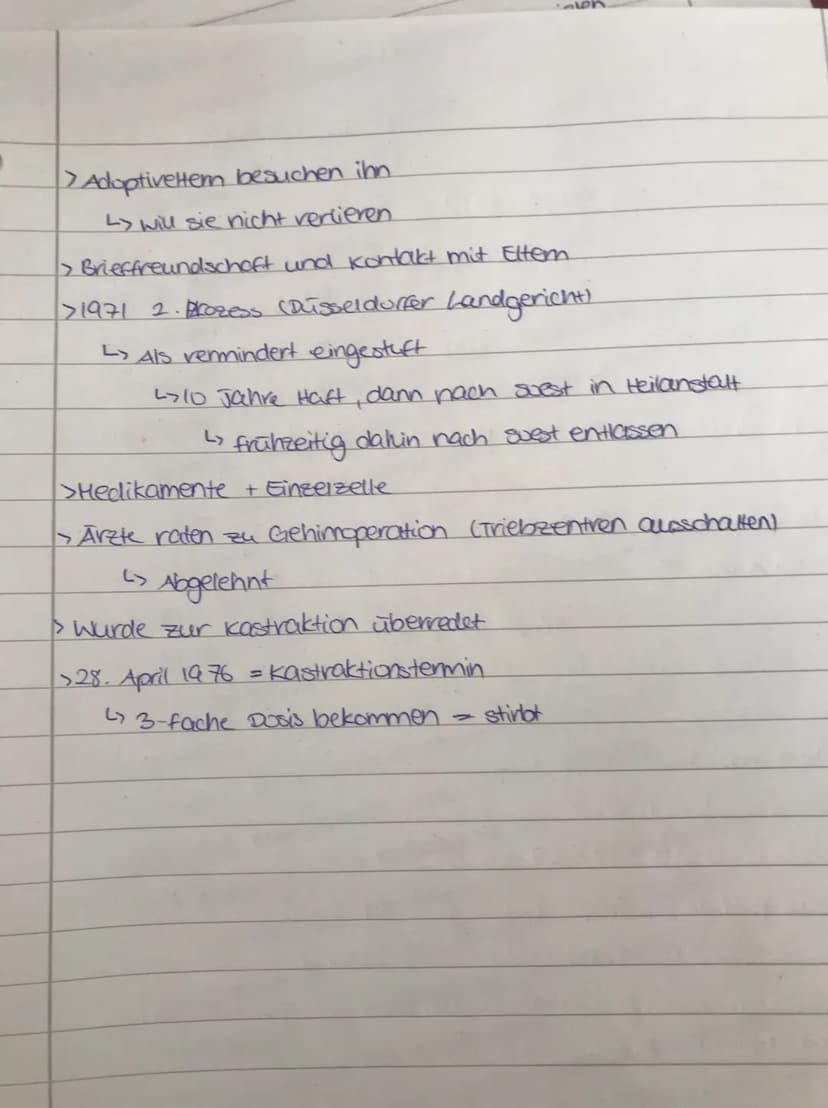 > Adoptiveltern besuchen ihn
↳ will sie nicht verlieren
> Brieffreundschaft und Kontakt mit Eltern
> 1971 2. Prozess (Düsseldorfer Landgericht)
↳ Als vermindert eingestuft
↳ 10 Jahre Haft, dann nach soest in Heilanstalt
↳ frühzeitig dahin nach soest entlassen
> Medikamente + Einzelzelle
> Ärzte raten zu Gehirnoperation (Triebzentren ausschalten)
↳ Abgelehnt
> Wurde zur Kastraktion überredet
> 28. April 1976 = Kastraktionstermin
↳ 3-fache Dosis bekommen = stirbt